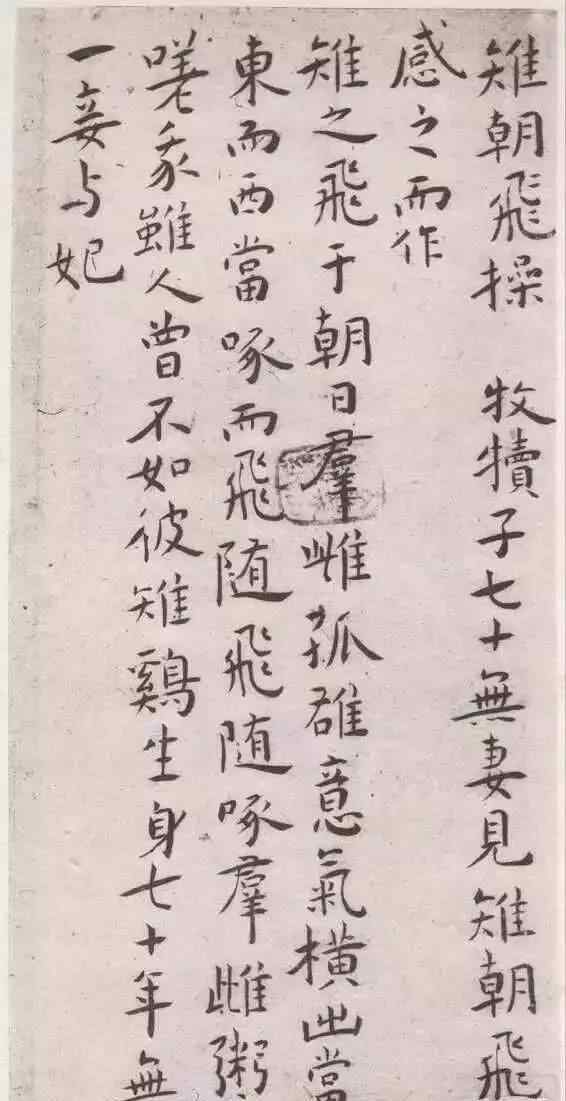 雉朝飛操 牧犢子七十無妻見雉朝飛
感之而作
雉之飛于朝日羣雌孤雄意氣橫出當
東而西當啄而飛随飛随啄羣雌粥
嗟我雖人曾不如彼雉鷄生身七十年無
一妾与妃